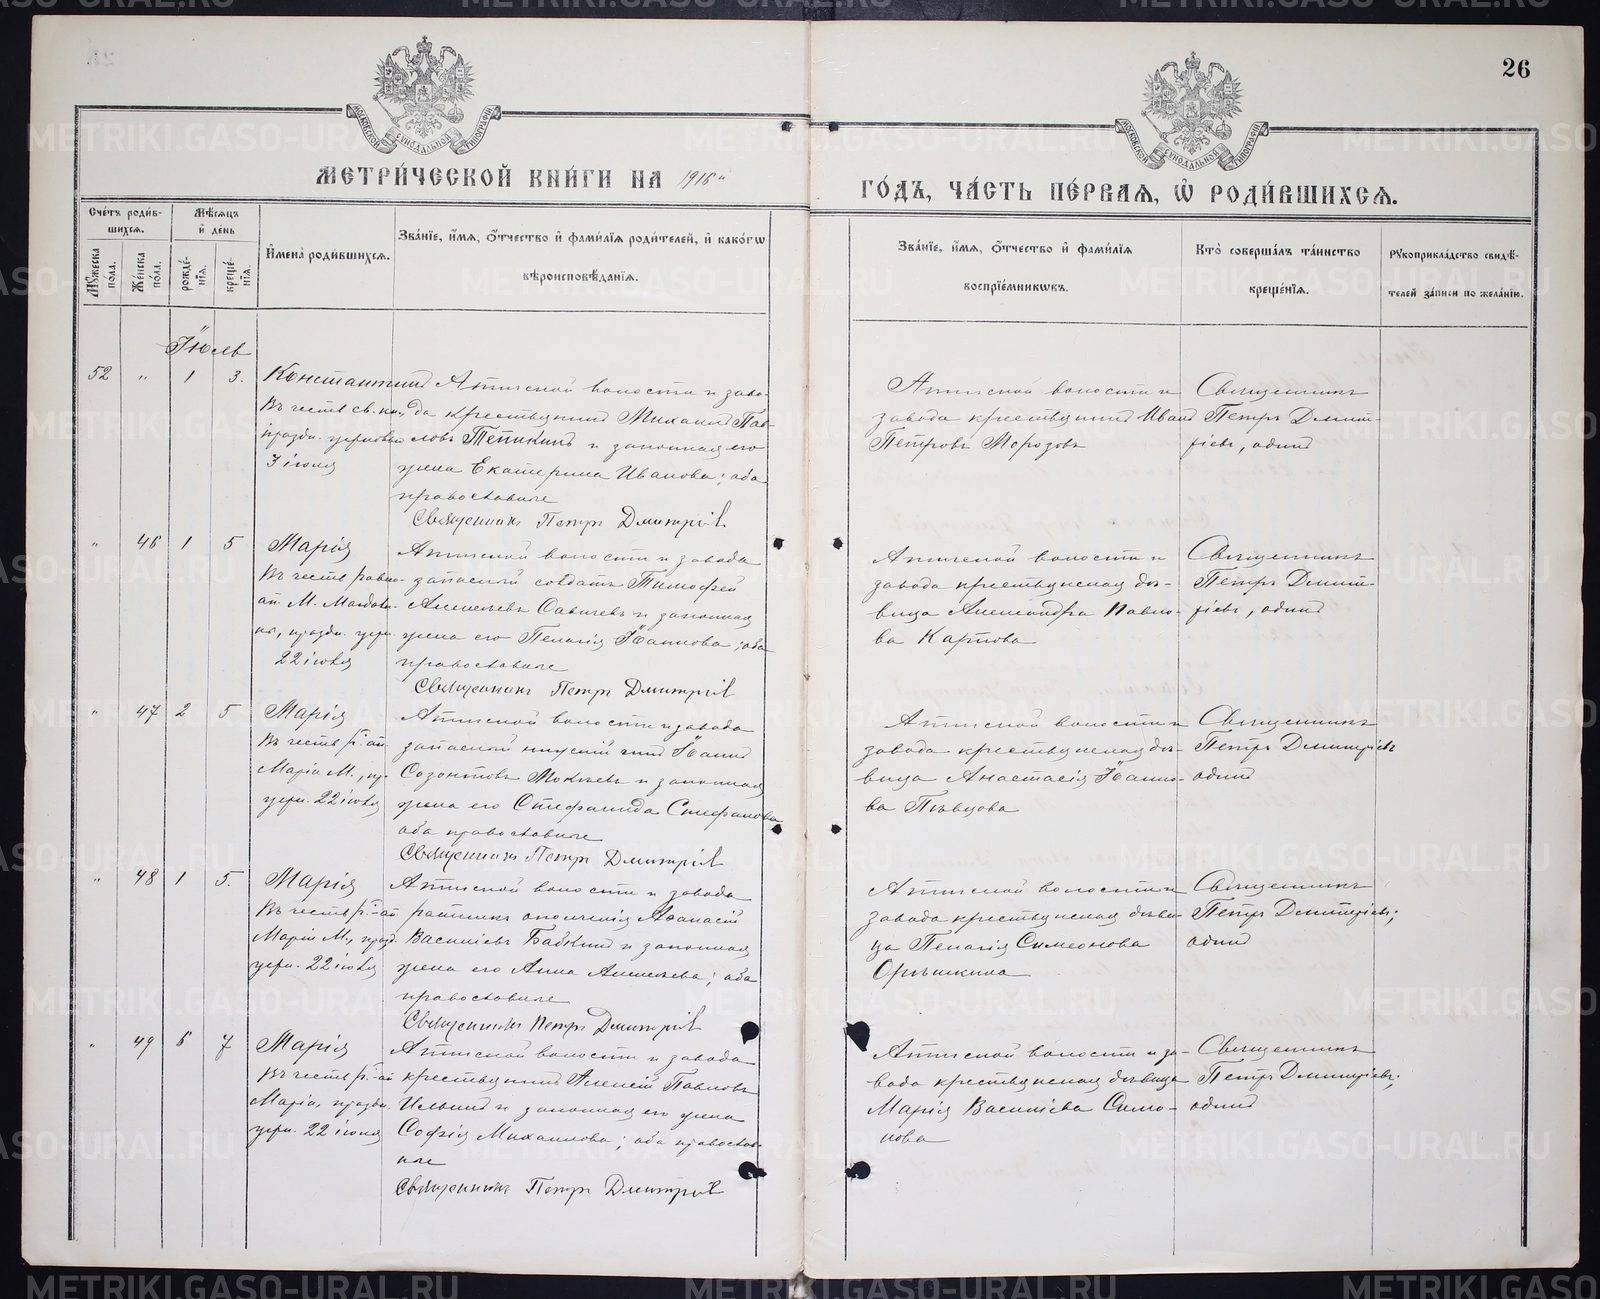 26
МЕТРИ́ЧЕСКОЙ КНИ́ГИ НА 1916й
ГО́ДЪ, ЧА́СТЬ ПЕ́РВАЯ, Ѡ҆ РОДИ́ВШИХСЯ.
Сче́тъ роди́вшихся.
Мѣ́сяцъ и҆ де́нь
Му́жеска по́ла.
Же́нска по́ла.
рожде́нїя.
креще́нїя.
И҆мена̀ роди́вшихся.
Зва́нїе, и҆́мя, ѻ҆́тчество и҆ фами́лїя роди́телей, и҆ како́гѡ
вѣроисповѣ́данїя.
Зва́нїе, и҆́мя, ѻ҆́тчество и҆ фами́лїя
воспрїе́мникѡвъ.
Кто̀ соверша́лъ та́инство
креще́нїя.
Рукоприкла́дство свидѣ́-
телей за́писи по жела́нїю.
Іюль
52 " 1 3.
Константинъ
Въ честь св. кн.,
праздн. церковью
3 іюля
Атигской волости и заво-
да крестьянинъ Михаилъ Пав-
ловъ Тепикинъ и законная его
жена Екатерина Иванова; оба
православные
Священникъ Петръ Дмитріев
Атигской волости и
завода крестьянинъ Иванъ
Петровъ Морозовъ
Священникъ
Петръ Дмит-
ріевъ, одинъ
" 46 1 5
Марія
Въ честь равно-
ап. М. Магдали-
ны, праздн. церк.
22 іюля
Атигской волости и завода
запасный солдатъ Тимофей
Алексѣевъ Савичевъ и законная
жена его Пелагія Іоаннова; оба
православные
Священникъ Петръ Дмитріев
Атигской волости и
завода крестьянская дѣ-
вица Александра Павло-
ва Карпова
Священникъ
Петръ Дмит-
ріевъ, одинъ
" 47 2 5
Марія
Въ честь р.-ап.
Маріи М., пр.
церк. 22 іюля
Атигской волости и завода
запасной нижній чинъ Іоаннъ
Созонтовъ Мокѣевъ и законная
жена его Стефанида Стефанова
оба православные
Священникъ Петръ Дмитріев
Атигской волости и
завода крестьянская дѣ-
вица Анастасія Іоанно-
ва Пѣвцова
Священникъ
Петръ Дмитріевъ
одинъ
" 48 1 5.
Марія
Въ честь р.-ап
Маріи М., празд.
церк. 22 іюля
Атигской волости и завода
ратникъ ополченія Аѳанасій
Василіевъ Бабкинъ и законная
жена его Анна Алексѣева; оба
православные
Священникъ Петръ Дмитріев
Атигской волости и
завода крестьянская дѣви-
ца Пелагія Симеонова
Орѣшкина
Священникъ
Петръ Дмитріевъ;
одинъ
" 49 6 7
Марія
Въ честь р.-ап
Маріи, праздн.
церк. 22 іюля
Атигской волости и завода
крестьянинъ Алексій Павловъ
Ильинъ и законная его жена
Софія Михаилова; оба православ-
ные
Священникъ Петръ Дмитріев
Атигской волости и за-
вода крестьянская дѣвица
Марія Василіева Симо-
нова
Священникъ
Петръ Дмитріевъ;
одинъ